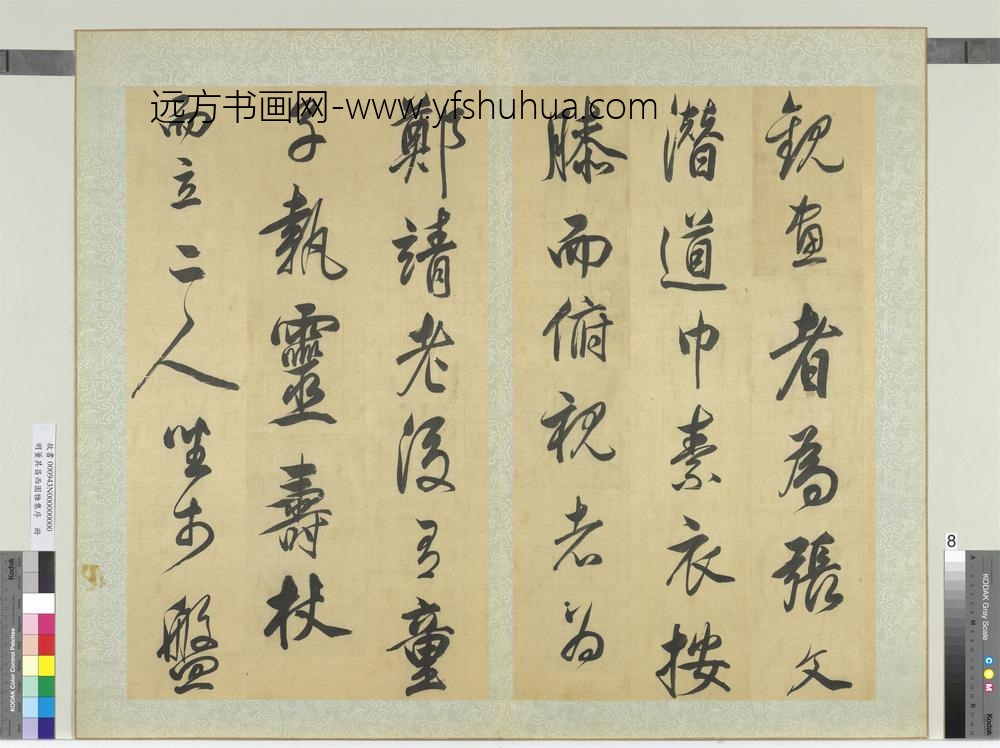 远方书画网-www.yfshuhua.com
觀畫者為張文
潛道巾素衣按
膝而俯視者為
鄭靖老後有童
子執靈壽杖
而立二人坐於盤
故書 000943N000000000
明董其昌西園雅集序 冊
8
Kodak
KODAK Color Control Patches
KODAK Gray Scale
C
Y
M
Kodak
A
M
B